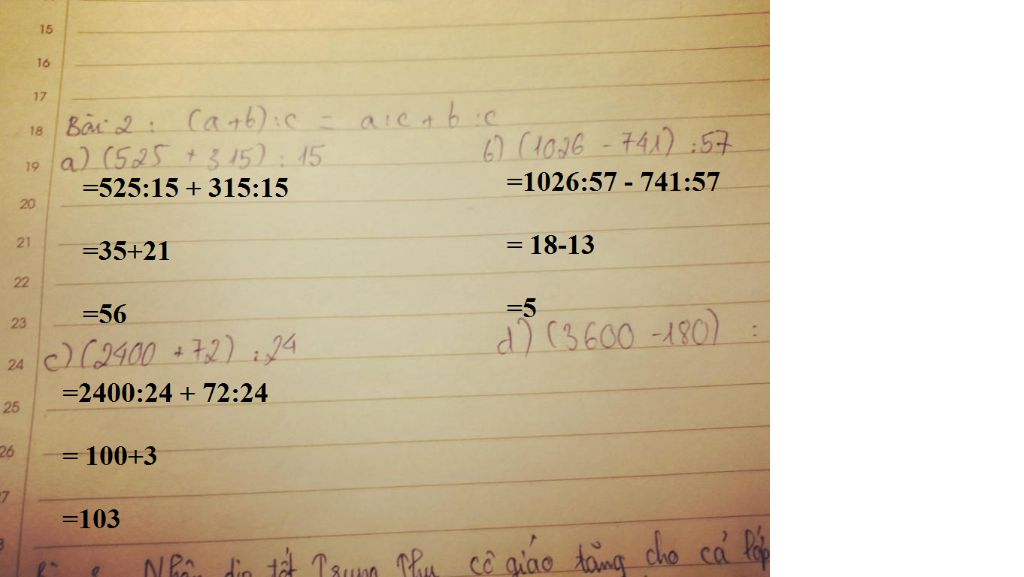 15
16
17
18 Bài 2 : (a+b):c = a:c + b :c
19 a) (525 + 315) : 15 b) (1026 - 741) :57
=525:15 + 315:15 =1026:57 - 741:57
20
21 =35+21 = 18-13
22
23 =56 =5
24 c) (2400 +72) : 24 d) (3600 -180) :
=2400:24 + 72:24
25
26 = 100+3
7
=103
Nhân dịp tết Trung Thu cô giáo tặng cho cả lớp